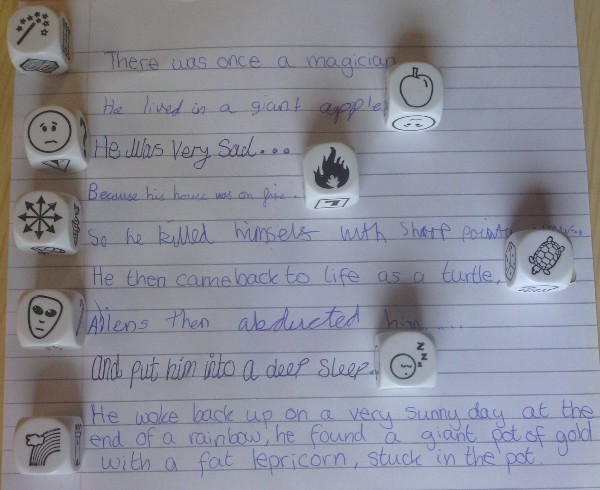 There was once a magician
He lived in a giant apple
He Was Very Sad...
Because his house was on fire.
So he killed himself with sharp pointy
He then came back to life as a turtle.
Aliens then abducted him.....
And put him into a deep sleep.
He woke back up on a very sunny day at the
end of a rainbow, he found a giant pot of gold
with a fat lepricorn, stuck in the pot.